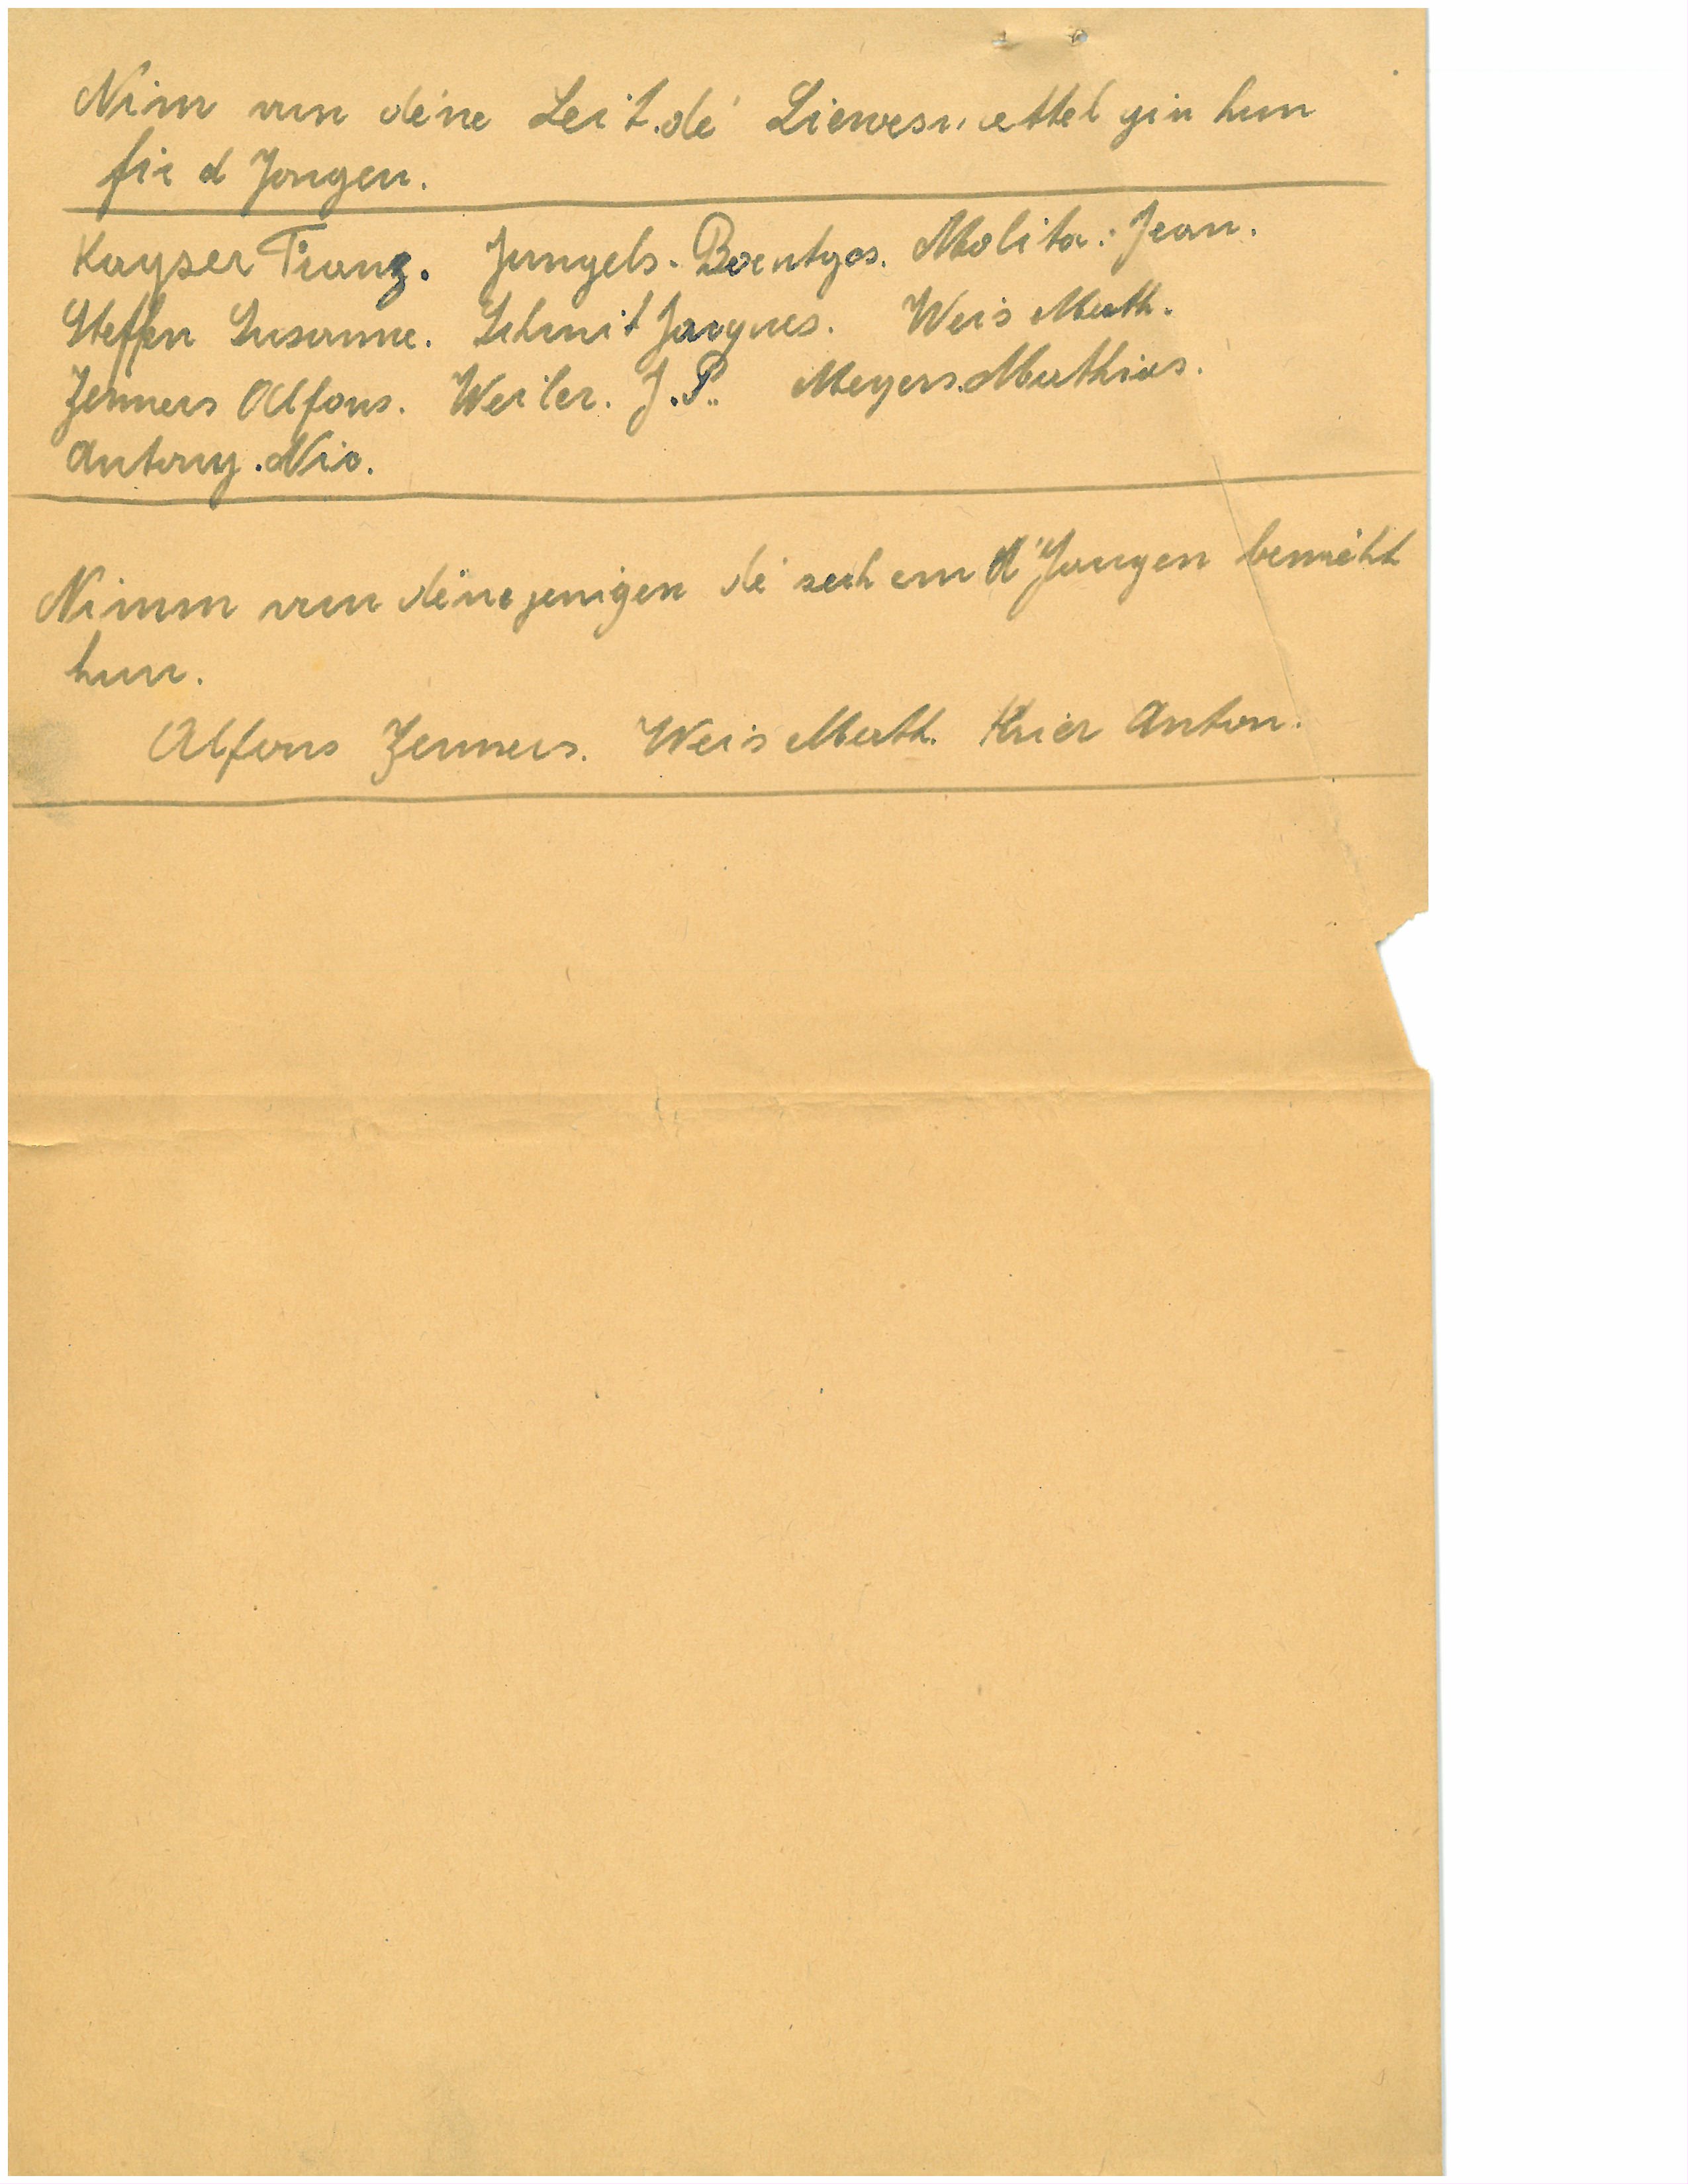 Nimm vun déne Leit.dé Liewesmettel gin hun
fir d Jongen.
Kayser Franz. Jungels. Boentges. Molitor. Jean.
Steffen Susanne. Schmit Jacques. Weis Math.
Zenners Alfons. Weiler. J.P. Meyers.Mathias.
Antony.Nic.
Nimm vun dénejenigen dé sech em d'Jongen beméht
hun.
Alfons Zenners. Weis Math. Krier Anton.